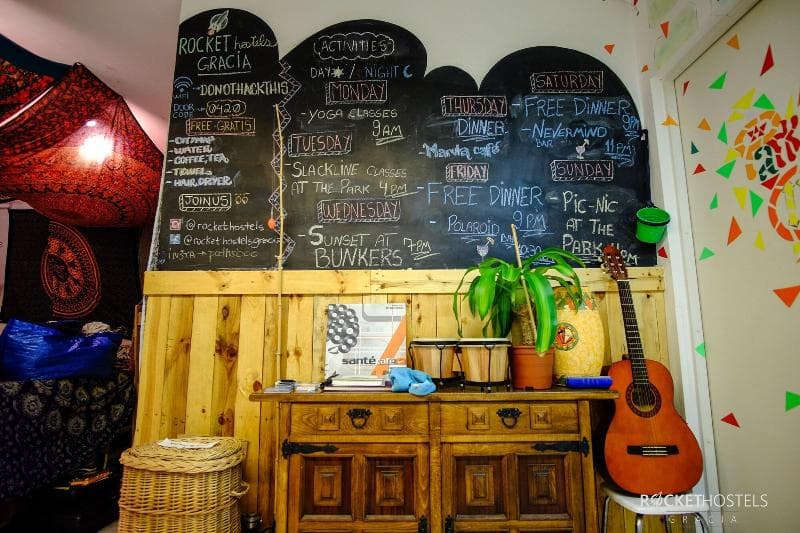 ROCKET hostels
GRACIA
WIFI
-DONOTHACKTHIS
DOOR
CODE 0420
FREE-GRATIS
- CITYMAP
- WATER
- COFFEE, TEA
- TOWELS
- HAIR DRYER
JOIN US
@rockethostels
@rockethostelsgracia
ACTIVITIES
DAY / NIGHT
MONDAY
- YOGA CLASSES
9AM
TUESDAY
SLACKLINE CLASSES
AT THE PARK 4PM
WEDNESDAY
SUNSET AT
BUNKERS
7PM
THURSDAY
DINNER
Manila café
FRIDAY
- FREE DINNER
9PM
- POLAROID
BAR 10:30
SATURDAY
- FREE DINNER
9PM
- NEVERMIND
BAR
11PM
SUNDAY
- PIC-NIC
AT THE
PARK
santé
ROCKETHOSTELS
GRACIA